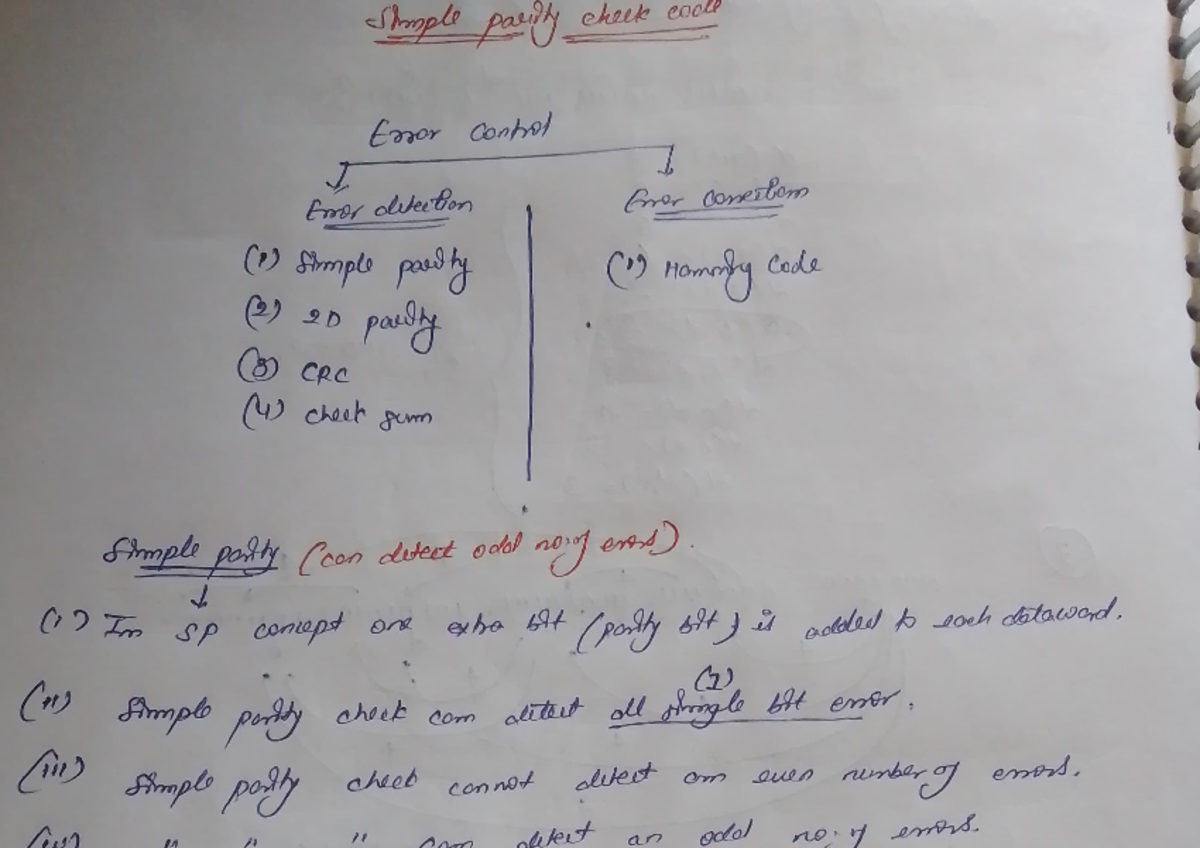 Simple parity check code
Error Control
Error detection
Error correction
(1) Simple parity
(1) Hamming Code
(2) 2D parity
(3) CRC
(4) check sum
Simple parity (can detect odd no. of errors).
(i) In SP concept one extra bit (parity bit) is added to each dataword.
(1)
(ii) Simple parity check can detect all single bit error.
(iii) Simple parity check cannot detect an even number of errors.
(iv) " " " can detect an odd no. of errors.